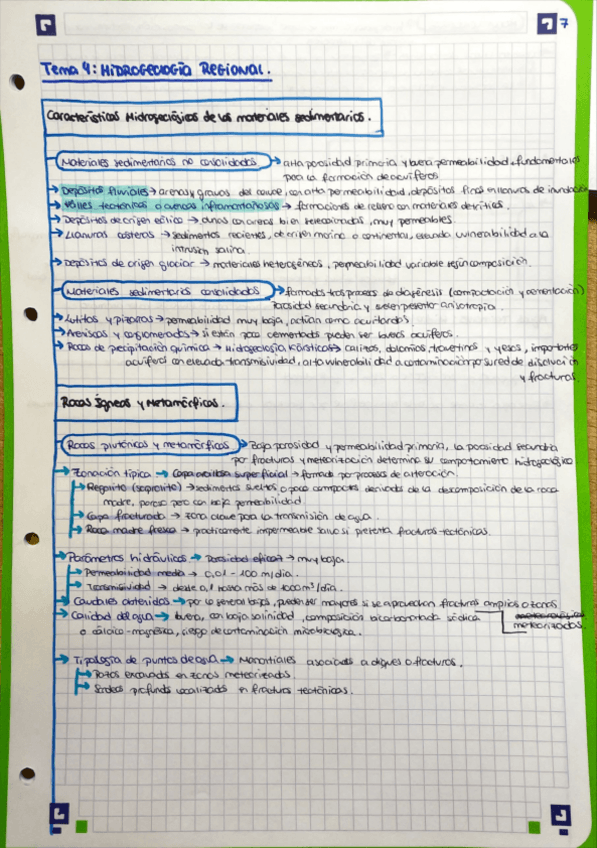 7
Tema 4: HIDROGEOLOGÍA REGIONAL.
Características Hidrogeológicas de los materiales sedimentarios.
Materiales sedimentarios no consolidados → alta porosidad primaria y buena permeabilidad, fundamentales
para la formación de acuíferos
→ Depósitos fluviales → arenas y gravas del cauce, con alta permeabilidad, depósitos finos en llanuras de inundación
→ Valles tectónicos o cuencas intramontañosas → formaciones de relleno con materiales detríticos.
→ Depósitos de origen eólico → dunas con arenas bien seleccionadas, muy permeables.
→ Llanuras costeras → sedimentos recientes, de origen marino o continental, elevada vulnerabilidad a la
intrusión salina.
→ Depósitos de origen glaciar → materiales heterogéneos, permeabilidad variable según composición.
Materiales sedimentarios consolidados → formados tras procesos de diagénesis (compactación y cementación)
Porosidad secundaria y suelen presentar anisotropía.
→ Lutitas y pizarras → permeabilidad muy baja, actúan como acuitardos.
→ Areniscas y conglomerados → si están poco cementados pueden ser buenos acuíferos.
→ Rocas de precipitación química → Hidrogeología kárstica → calizas, dolomías, travertinos y yesos, importantes
acuíferos con elevada transmisividad, alta vulnerabilidad a contaminación por su red de disolución
y fracturas.
Rocas Ígneas y Metamórficas.
Rocas plutónicas y metamórficas → Baja porosidad y permeabilidad primaria, la porosidad secundaria
por fracturas y meteorización determina su comportamiento hidrogeológico
→ Zonación típica → Capa acuífera superficial → formada por procesos de alteración.
→ Regolito (saprolito) → sedimentos sueltos o poco compactos derivados de la descomposición de la roca
madre, poroso pero con baja permeabilidad.
→ Capa fracturada → zona clave para la transmisión de agua.
→ Roca madre fresca → prácticamente impermeable salvo si presenta fracturas tectónicas.
→ Parámetros hidráulicos → Porosidad eficaz → muy baja.
→ Permeabilidad media → 0,01 - 100 m/día.
→ Transmisividad → desde 0,1 hasta más de 1000 m²/día.
→ Caudales obtenidos → por lo general bajos, pueden ser mayores si se aprovechan fracturas amplias o zonas
meteorizadas.
→ Calidad del agua → buena, con baja salinidad, composición bicarbonatada sódica
o cálcico-magnésica, riesgo de contaminación microbiológica.
→ Tipología de puntos de agua → Manantiales asociados a diques o fracturas.
→ Pozos excavados en zonas meteorizadas.
→ Sondeos profundos localizados en fracturas tectónicas.